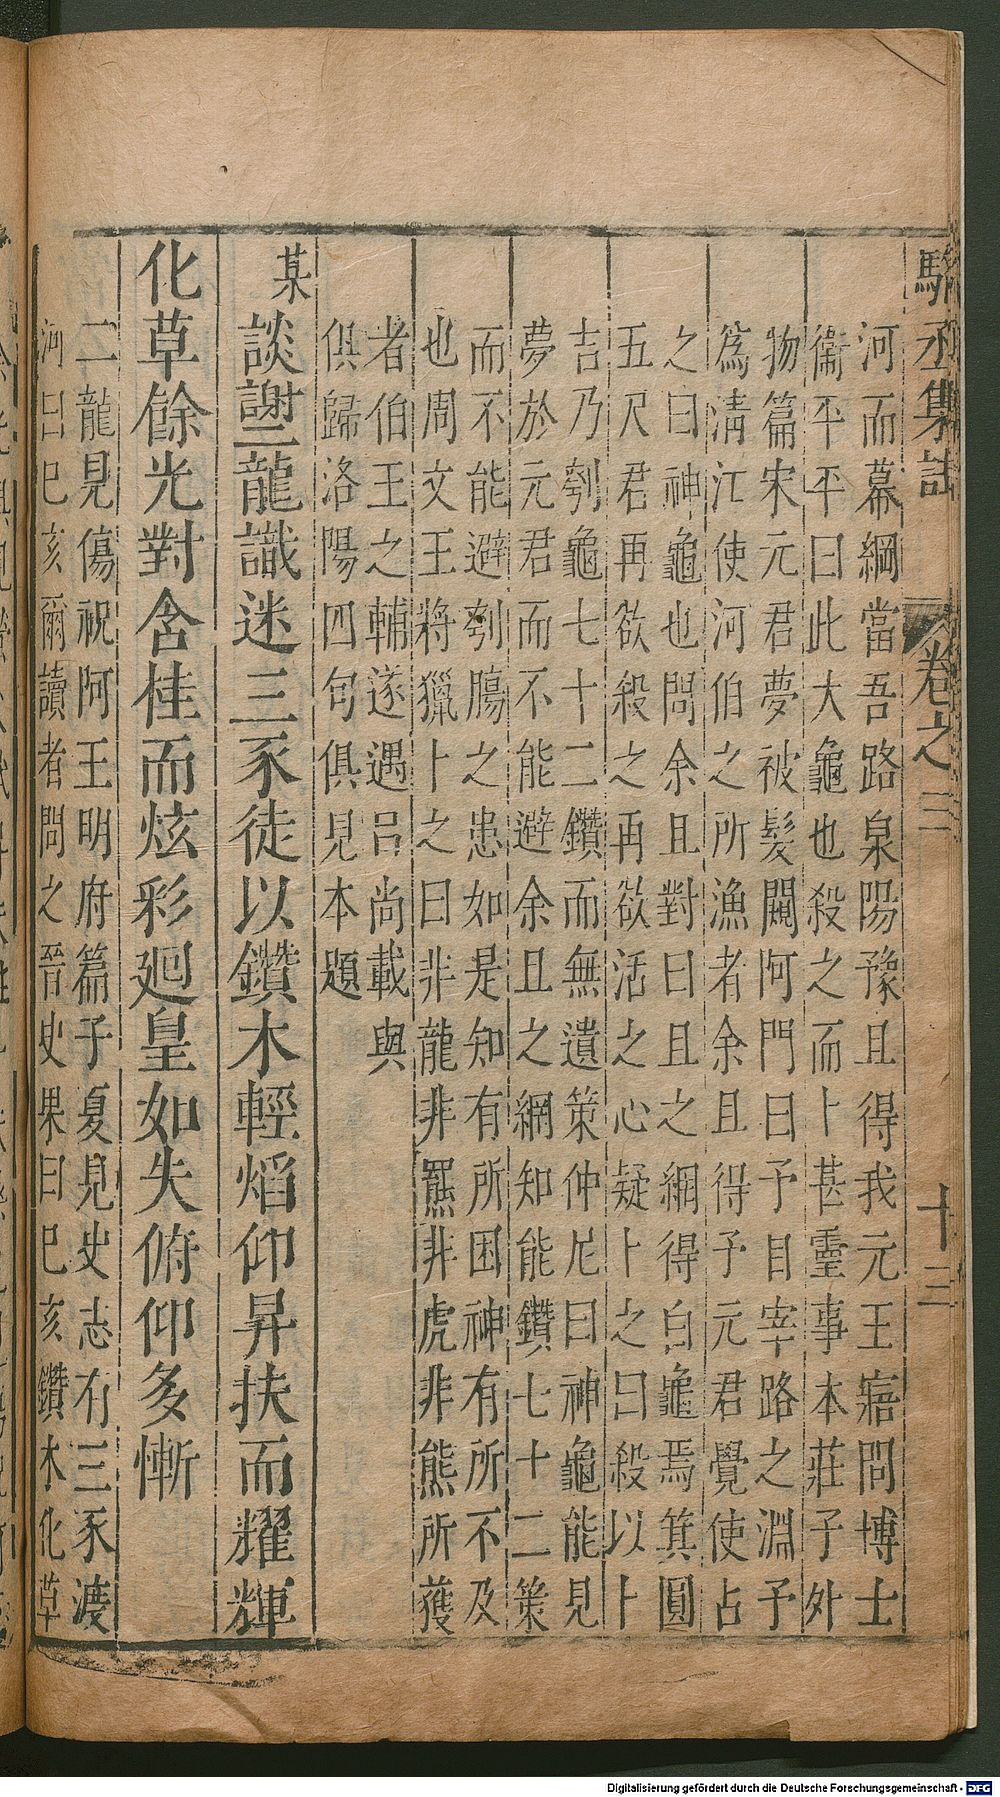 駱丞集註 卷之三 十三
河而幕網當吾路泉陽豫且得我元王寤問博士
衞平平曰此大龜也殺之而卜甚靈事本莊子外
物篇宋元君夢被髮闚阿門曰予自宰路之淵予
爲清江使河伯之所漁者余且得予元君覺使占
之曰神龜也問余且對曰且之網得白龜焉箕圓
五尺君再欲殺之再欲活之心疑卜之曰殺以卜
吉乃刳龜七十二鑽而無遺策仲尼曰神龜能見
夢於元君而不能避余且之網知能鑽七十二策
而不能避刳腸之患如是知有所困神有所不及
也周文王將獵卜之曰非龍非羆非虎非熊所獲
者伯王之輔遂遇呂尚載與
俱歸洛陽四句俱見本題
某談謝二龍識迷三豕徒以鑽木輕熖仰昇扶而耀輝
化草餘光對含桂而炫彩廻皇如失俯仰多慚
二龍見傷祝阿王明府篇子夏見史志有三豕渡
河曰巳亥爾讀者問之晉史果曰巳亥鑽木化草
Digitalisierung gefördert durch die Deutsche Forschungsgemeinschaft - DFG